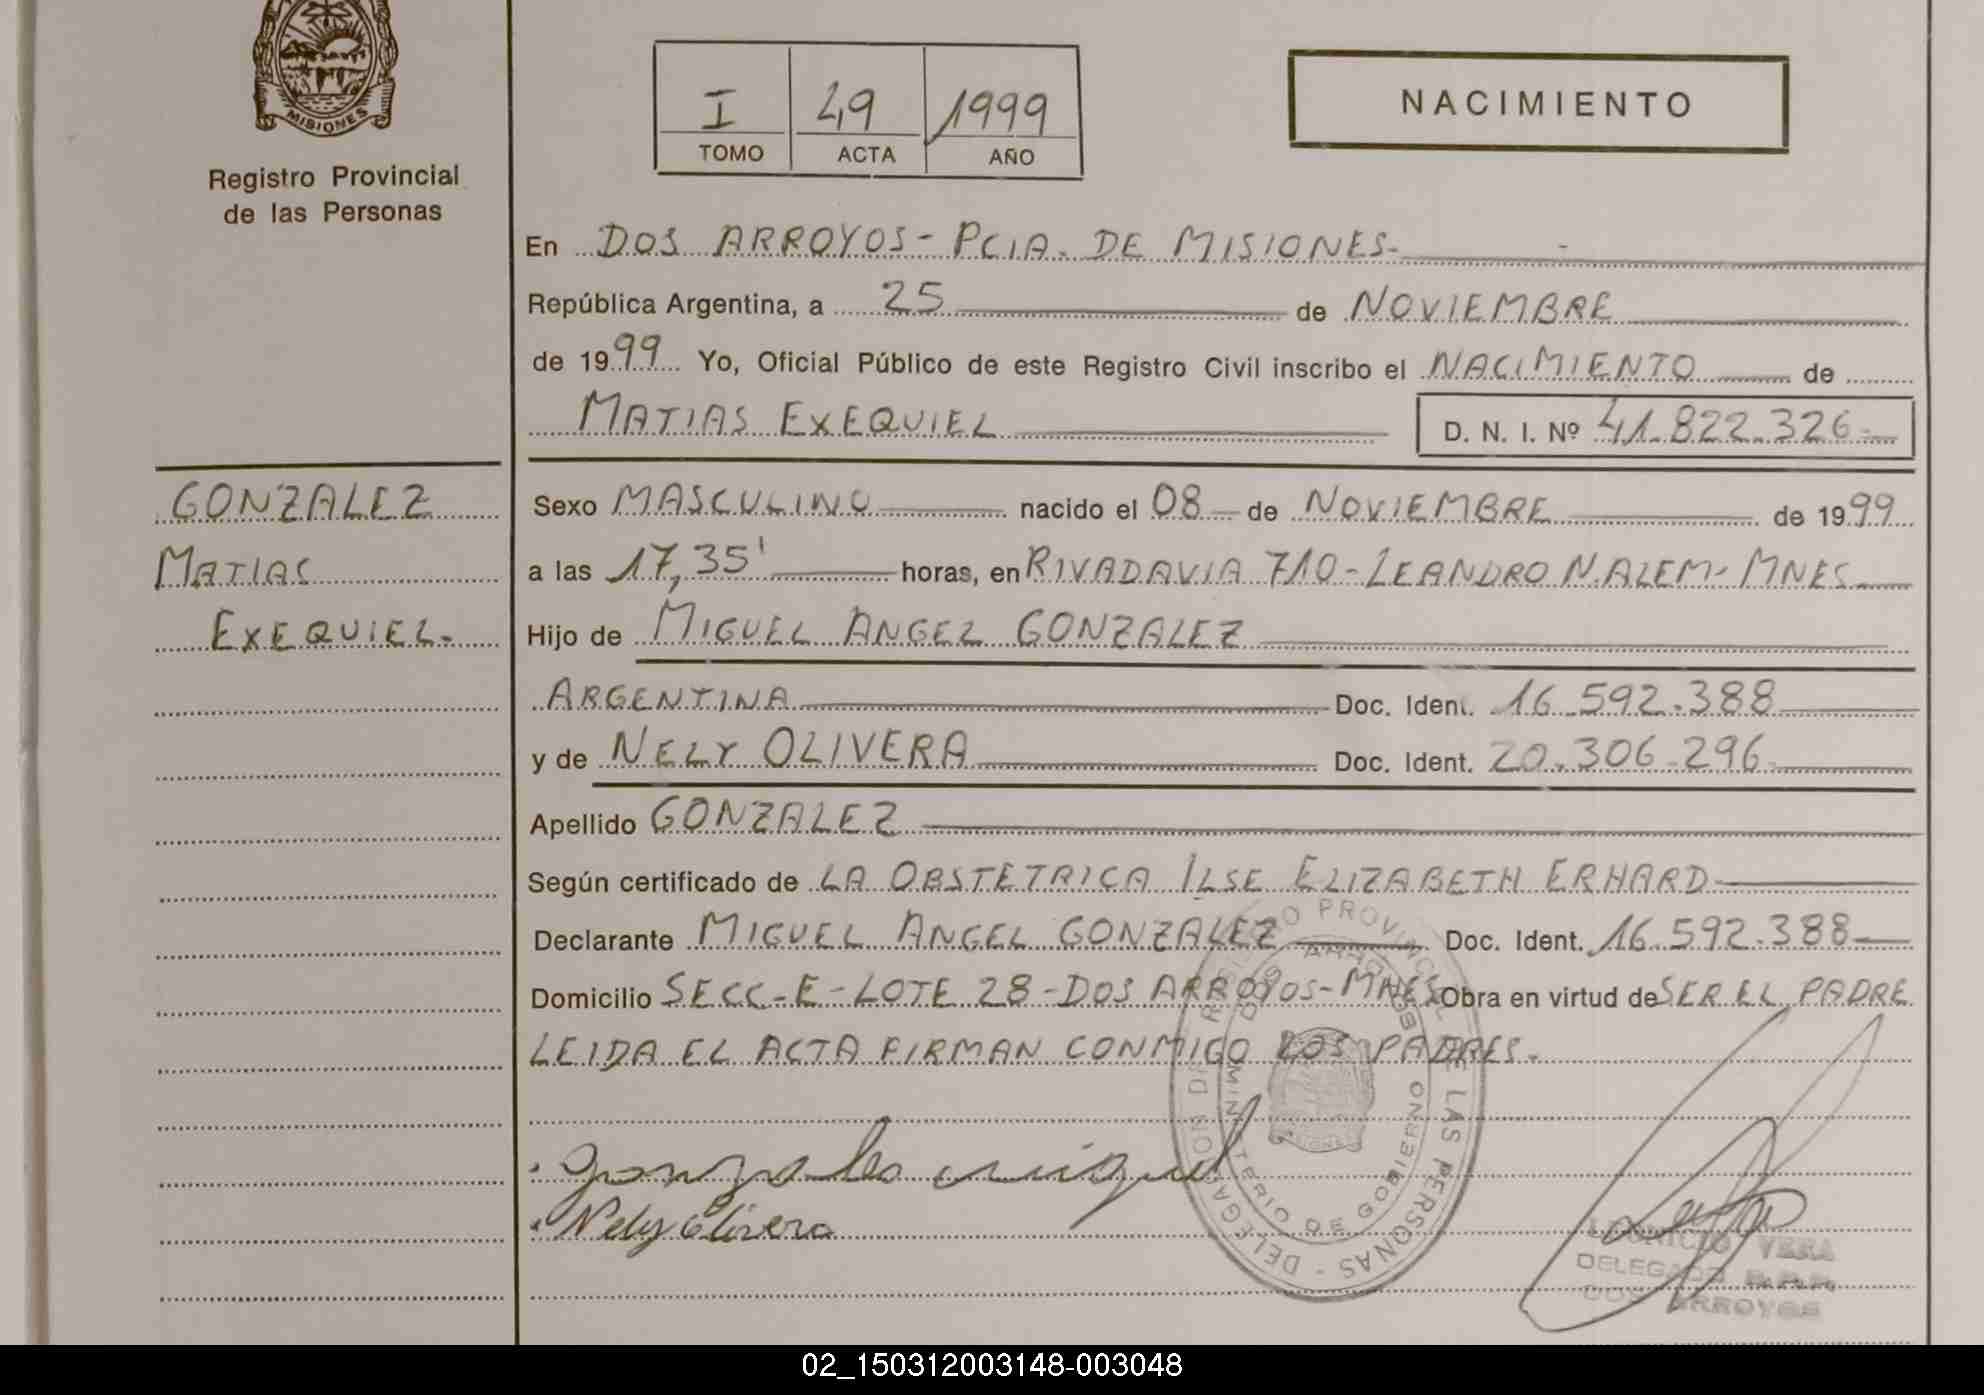 MISIONES
Registro Provincial
de las Personas
I 49 1999
TOMO ACTA AÑO
NACIMIENTO
En DOS ARROYOS - PCIA. DE MISIONES-
República Argentina, a 25 de NOVIEMBRE
de 1999 Yo, Oficial Público de este Registro Civil inscribo el NACIMIENTO de
MATIAS EXEQUIEL D. N. I. Nº 41.822.326-
GONZALEZ
MATIAS
EXEQUIEL.
Sexo MASCULINO nacido el 08 de NOVIEMBRE de 1999
a las 17,35' horas, en RIVADAVIA 710 - LEANDRO N. ALEM - MNES
Hijo de MIGUEL ANGEL GONZALEZ
ARGENTINA Doc. Ident. 16.592.388
y de NELY OLIVERA Doc. Ident. 20.306.296
Apellido GONZALEZ
Según certificado de LA OBSTETRICA ILSE ELIZABETH ERHARD
Declarante MIGUEL ANGEL GONZALEZ Doc. Ident. 16.592.388
Domicilio SECC-E-LOTE 28-DOS ARROYOS-MNES Obra en virtud de SER EL PADRE
LEIDA EL ACTA FIRMAN CONMIGO LOS PADRES.
Gonzales miguel
Nely Olivera
REGISTRO PROVINCIAL DE LAS PERSONAS - DELEGACION DOS ARROYOS
MINISTERIO DE GOBIERNO
VERA
DELEGADO R.P.P.
DOS ARROYOS
02_150312003148-003048